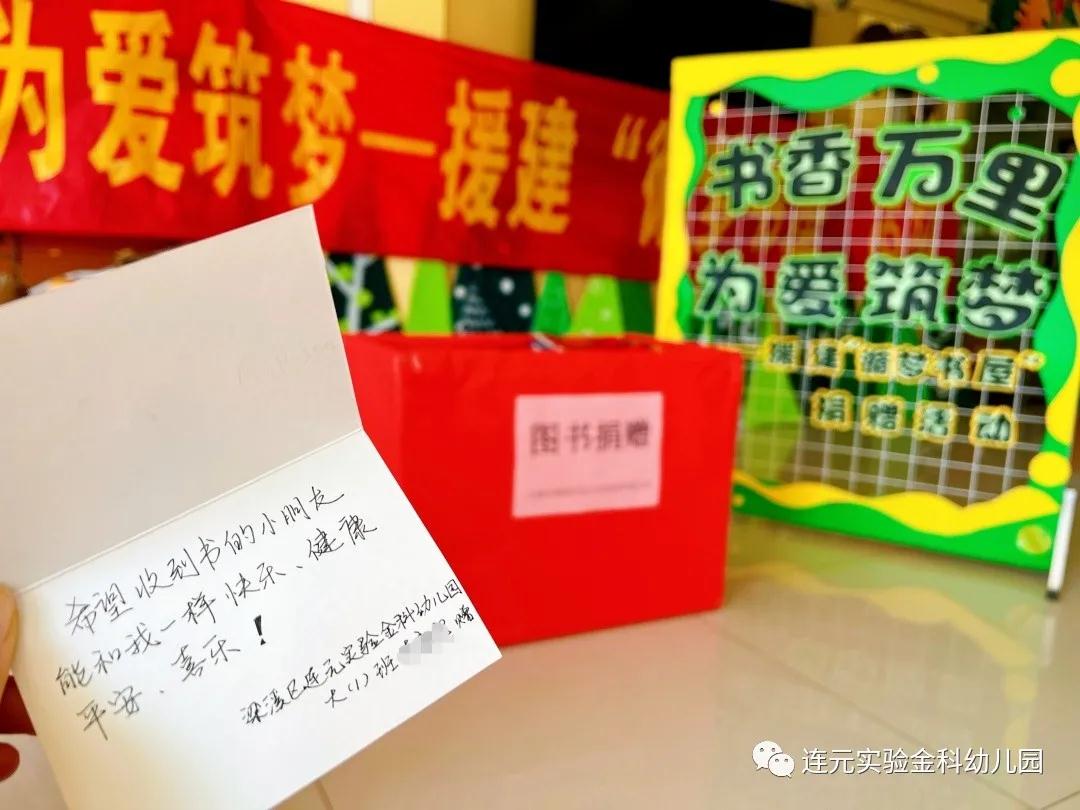 为爱筑梦—援建“
书香万里
为爱筑梦
援建“循梦书屋”
捐赠活动
图书捐赠
希望收到书的小朋友
能和我一样快乐、健康
平安、喜乐！
梁溪区连元实验金科幼儿园
大(1)班 赠
连元实验金科幼儿园